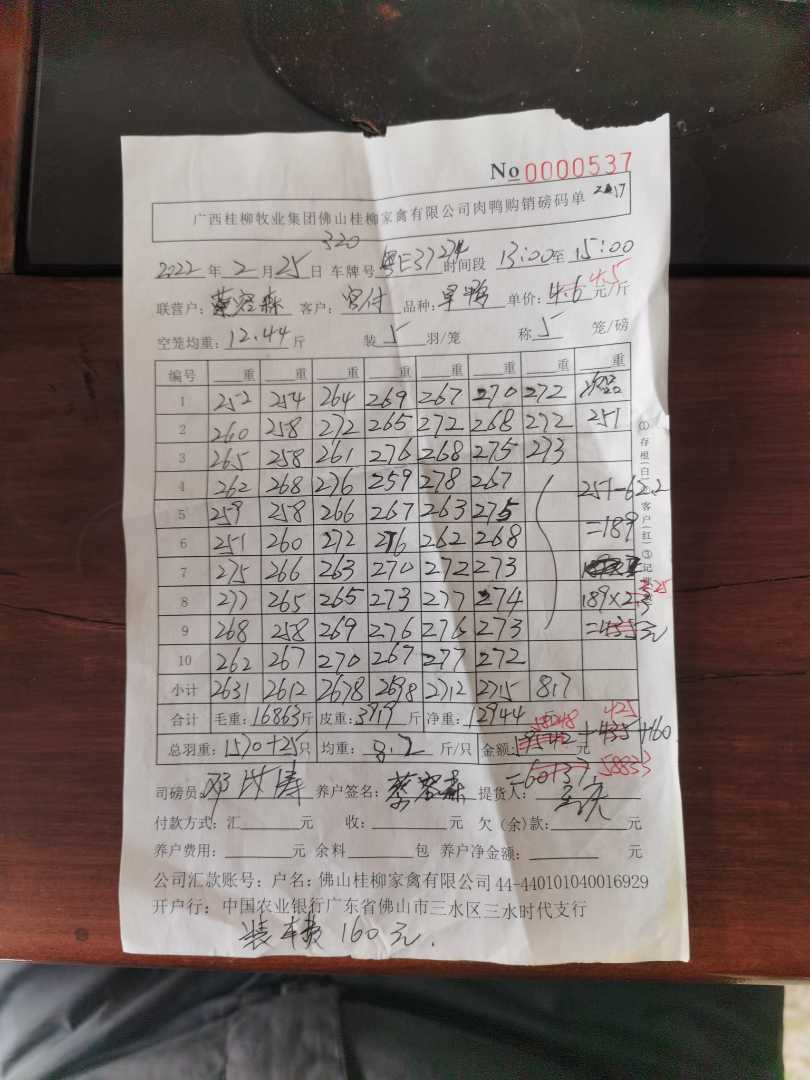 No 0000537
广西桂柳牧业集团佛山桂柳家禽有限公司肉鸭购销磅码单
320
2022年2月25日 车牌号 粤E37274 时间段 13:00至15:00
联营户: 容森 客户: 品种: 单价: 4.6 4.5 元/斤
空笼均重: 12.44 斤 装 5 羽/笼 称 5 笼/磅
编号 重 重 重 重 重 重 重 重
1 252 254 264 269 267 270 272
2 260 258 272 265 272 268 272 251
3 265 258 261 276 268 275 273
4 262 268 276 259 278 267 251-62.2
5 259 258 266 267 263 275 =189
6 251 260 272 276 262 268
7 275 266 263 270 272 273
8 277 265 265 273 277 274 189×
9 268 258 269 276 276 273
10 262 267 270 267 277 272
小计 2631 2612 2678 2698 2712 2715 817
合计 毛重: 16863斤 皮重: 3919斤 净重: 12944 425
总羽重: 1570+25只 均重: 8.2 斤/只 金额: 58248 元 +435+160
=60137 58833
司磅员: 邓 涛 养户签名: 容森 提货人:
付款方式: 汇 元 收: 元 欠(余)款: 元
养户费用: 元 余料 包 养户净金额: 元
公司汇款账号: 户名: 佛山桂柳家禽有限公司 44-440101040016929
开户行: 中国农业银行广东省佛山市三水区三水时代支行
装车费160元.
①存根(白)②客户(红)③记